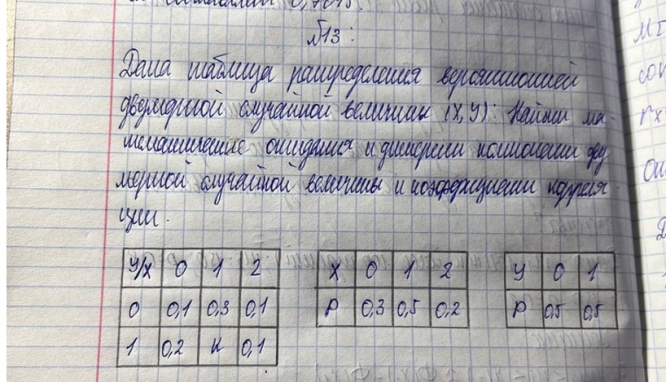 №13:
Дана таблица распределения вероятностей
двумерной случайной величины (X,Y): Найти ма-
тематические ожидания и дисперсии компонент дву
мерной случайной величины и коэффициент корреля-
ции.
Y/X 0 1 2 X 0 1 2 Y 0 1
0 0,1 0,3 0,1 P 0,3 0,5 0,2 P 0,5 0,5
1 0,2 К 0,1